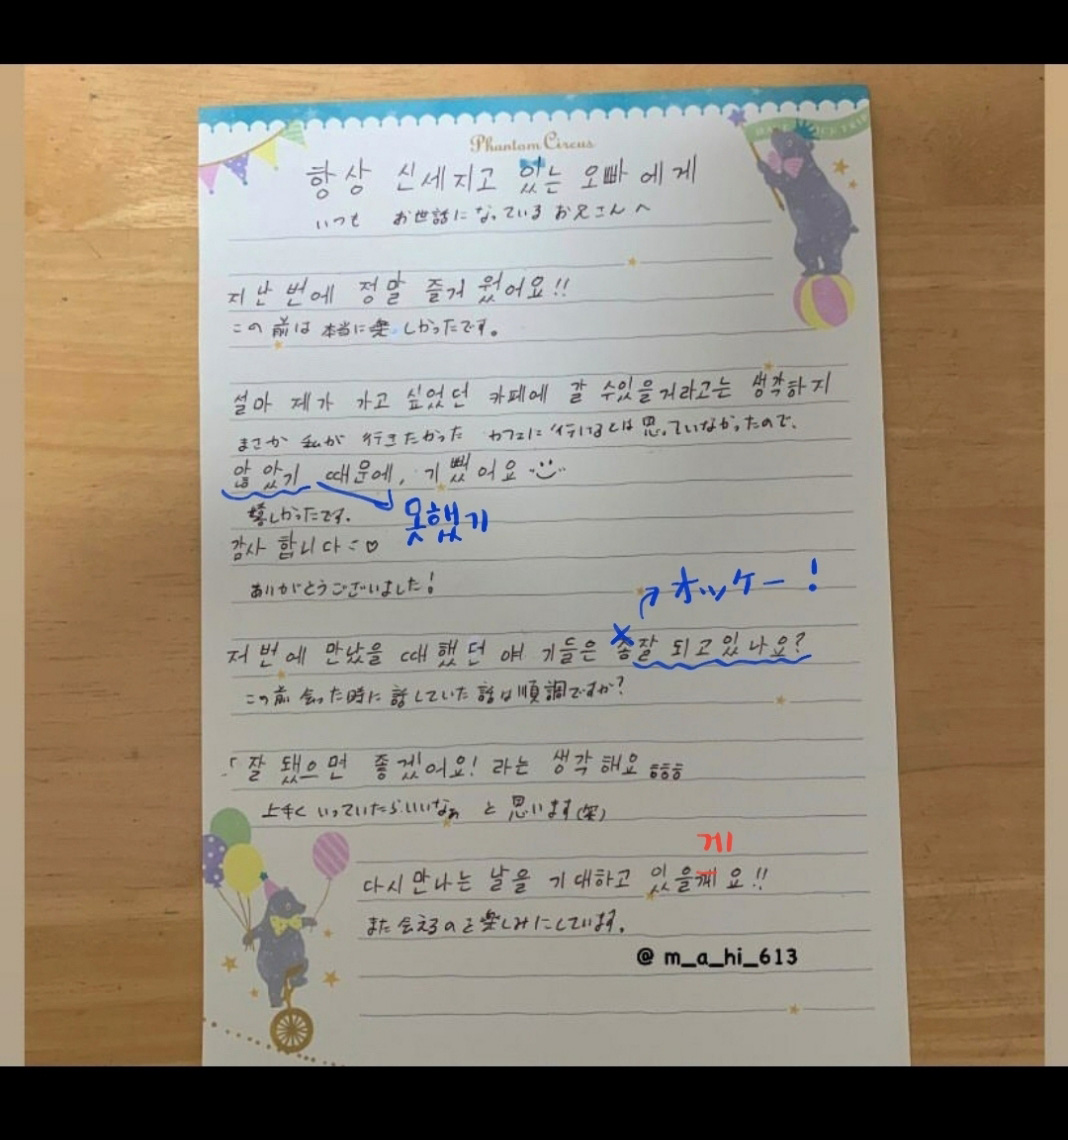 Phantom Circus
항상 신세지고 있는 오빠에게
いつも お世話になっているお兄さんへ
지난번에 정말 즐거웠어요!!
この前は本当に楽しかったです。
설마 제가 가고 싶었던 카페에 갈 수있을거라고는 생각하지
まさか私が行きたかった カフェに行けるとは思っていなかったので、
않았기 때문에, 기뻤어요
嬉しかったです.
못했기
감사합니다 ♡
ありがとうございました!
オッケー!
저번에 만났을 때 했던 얘기들은 잘 되고있나요?
この前会った時に話していた話は順調ですか?
「잘 됐으면 좋겠어요! 라는 생각해요 ㅎㅎㅎ
上手くいっていたらいいなぁ と思います(笑)
게
다시 만나는 날을 기대하고 있을께요!!
また会えるのを楽しみにしています.
@ m_a_hi_613